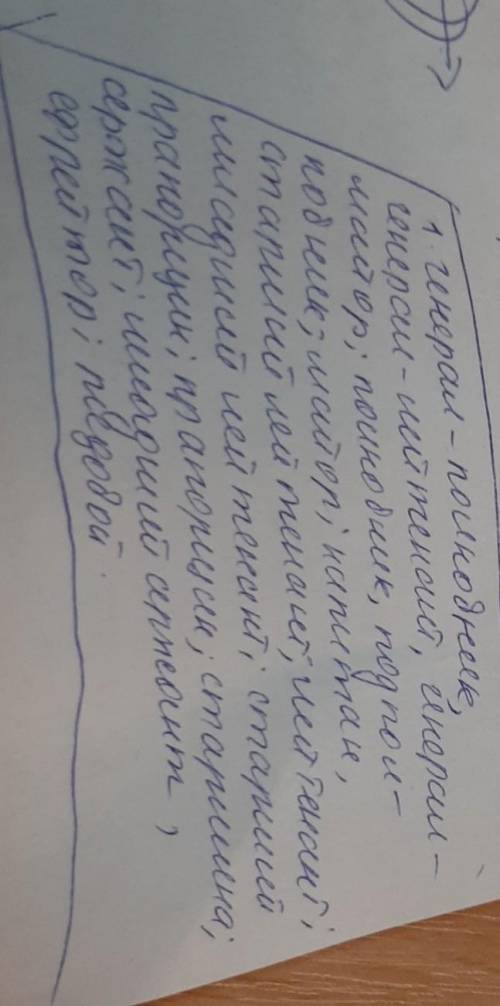 1. генерал-полковник,
генерал-лейтенант, генерал-
майор; полковник, подпол-
ковник; майор; капитан,
старший лейтенант; лейтенант;
младший лейтенант; старший
прапорщик; прапорщик; старшина;
сержант; младший сржант,
ефрейтор; рядовой.